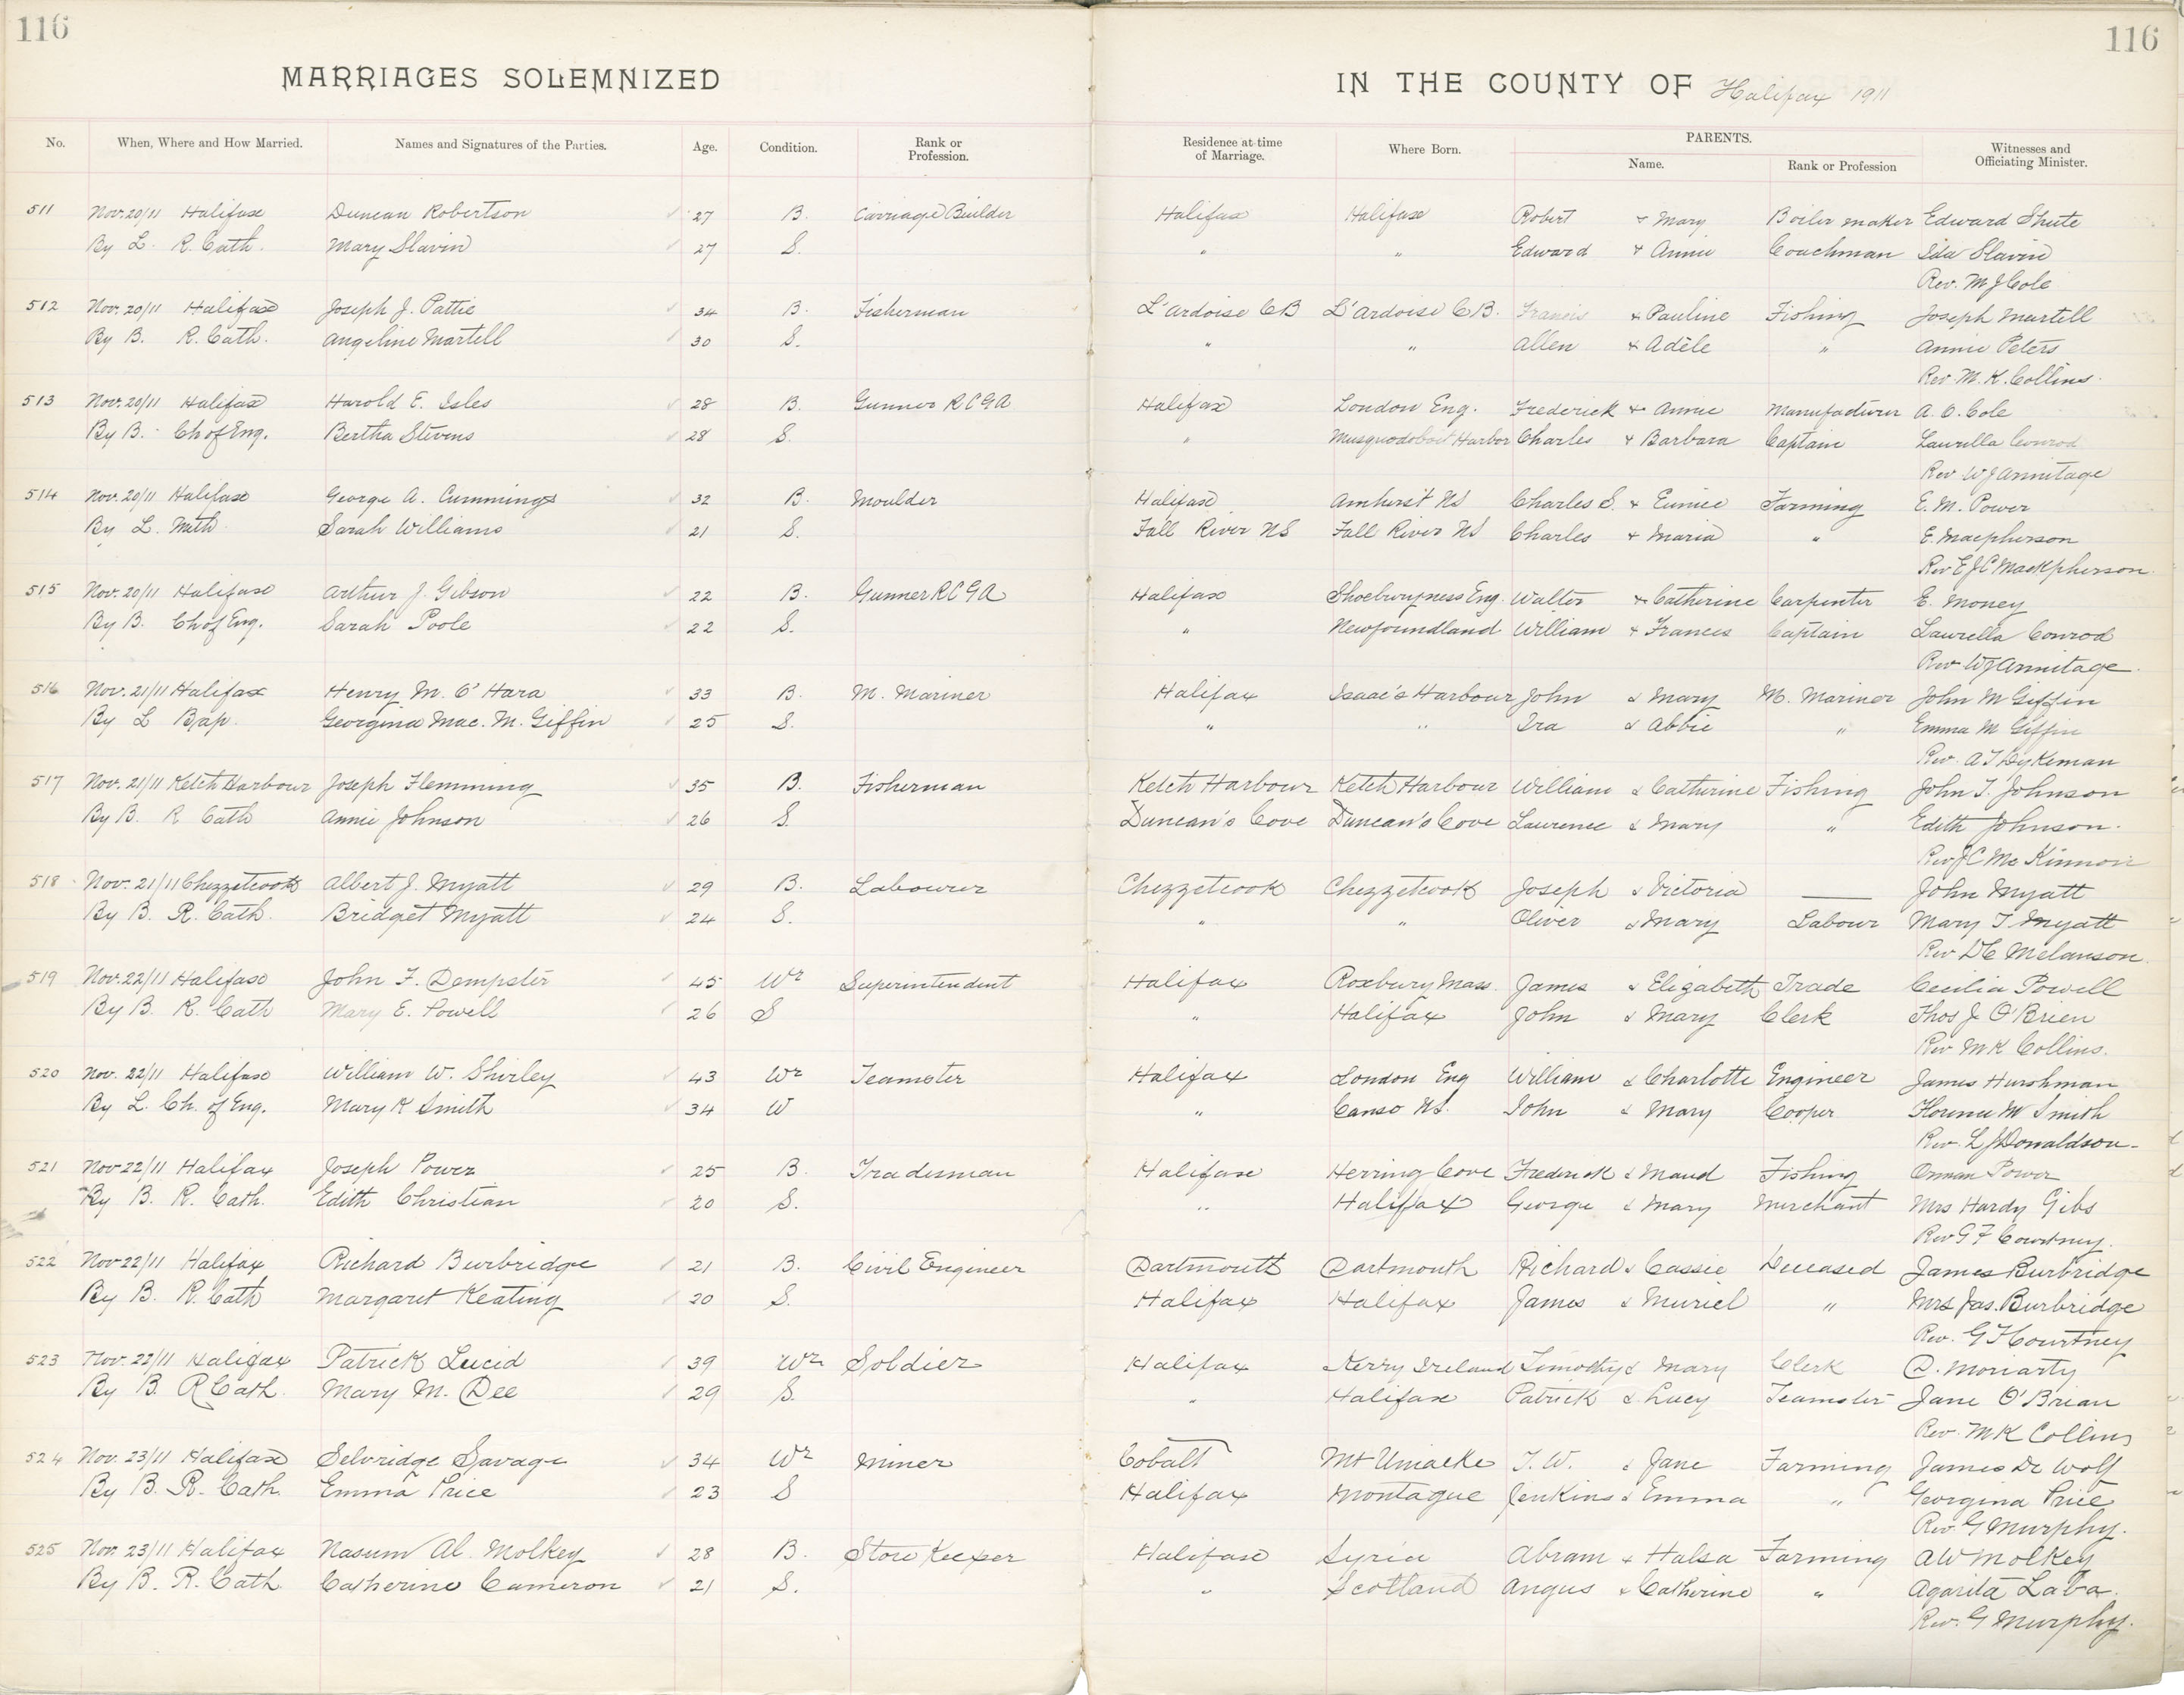 116
116
MARRIAGES SOLEMNIZED IN THE COUNTY OF Halifax 1911
No. When, Where and How Married. Names and Signatures of the Parties. Age. Condition. Rank or Profession. Residence at time of Marriage. Where Born. PARENTS. Name. Rank or Profession Witnesses and Officiating Minister.
511 Nov. 20/11 Halifax Duncan Robertson 27 B. Carriage Builder Halifax Halifax Robert & Mary Boiler maker Edward Shute
By L. R. Cath. Mary Slavin 27 S. " " Edward & Annie Coachman Ida Slavin
Rev. M J Cole
512 Nov. 20/11 Halifax Joseph J. Pattie 34 B. Fisherman L'Ardoise CB L'Ardoise C B. Francis & Pauline Fishing Joseph Martell
By B. R. Cath. Angeline Martell 30 S. " " Allen & Adèle " Annie Peters
Rev. M. K. Collins.
513 Nov. 20/11 Halifax Harold E. Isles 28 B. Gunner R C G A Halifax London Eng. Frederick & Annie Manufacturer A. O. Cole
By B. Ch of Eng. Bertha Stevens 28 S. " Musquodoboit Harbor Charles & Barbara Captain Laurella Conrod
Rev. W J Armitage
514 Nov. 20/11 Halifax George A. Cummings 32 B. Moulder Halifax Amherst NS Charles S. & Eunice Farming E. M. Power
By L. Meth. Sarah Williams 21 S. Fall River NS Fall River NS Charles & Maria " E. Macpherson
Rev E J C MacKpherson
515 Nov. 20/11 Halifax Arthur J. Gibson 22 B. Gunner R C G A Halifax Shoeburyness Eng. Walter & Catherine Carpenter E. Money
By B. Ch of Eng. Sarah Poole 22 S. " Newfoundland William & Frances Captain Laurella Conrod
Rev W J Armitage.
516 Nov. 21/11 Halifax Henry M. O'Hara 33 B. M. Mariner Halifax Isaac's Harbour John & Mary M. Mariner John M Giffin
By L Bap. Georgina Mac. M. Giffin 25 S. " " Ira & Abbie " Emma M Giffin
Rev. A T Dykeman
517 Nov. 21/11 Ketch Harbour Joseph Flemming 35 B. Fisherman Ketch Harbour Ketch Harbour William & Catherine Fishing John T. Johnson
By B. R Cath Annie Johnson 26 S. Duncan's Cove Duncan's Cove Laurence & Mary " Edith Johnson.
Rev J C McKinnon
518 Nov. 21/11 Chezzetcook Albert J. Myatt 29 B. Labourer Chezzetcook Chezzetcook Joseph & Victoria — John Myatt
By B. R. Cath. Bridget Myatt 24 S. " " Oliver & Mary Labour Mary T Myatt
Rev D C Melanson.
519 Nov. 22/11 Halifax John F. Dempster 45 Wr Superintendent Halifax Roxbury Mass. James & Elizabeth Trade Cecilia Powell
By B. R. Cath Mary E. Powell 26 S " Halifax John & Mary Clerk Thos J O'Brien
Rev M K Collins.
520 Nov. 22/11 Halifax William W. Shirley 43 Wr Teamster Halifax London Eng William & Charlotte Engineer James Hurshman
By L. Ch. of Eng. Mary K Smith 34 W " Canso NS. John & Mary Cooper Florence M Smith
Rev. L J Donaldson
521 Nov 22/11 Halifax Joseph Power 25 B. Tradesman Halifax Herring Cove Frederick & Maud Fishing Orman Power
By B. R. Cath. Edith Christian 20 S. " Halifax George & Mary Merchant Mrs Hardy Gibs
Rev G F Courtney.
522 Nov 22/11 Halifax Richard Burbridge 21 B. Civil Engineer Dartmouth Dartmouth Richard & Cassie Deceased James Burbridge
By B. R. Cath Margaret Keating 20 S. Halifax Halifax James & Muriel " Mrs Jas. Burbridge
Rev. G F Courtney
523 Nov. 22/11 Halifax Patrick Lucid 39 Wr Soldier Halifax Kerry Ireland Timothy & Mary Clerk D. Moriarty
By B. R Cath. Mary M. Dee 29 S. " Halifax Patrick & Lucy Teamster Jane O'Brian
Rev. M K Collins
524 Nov. 23/11 Halifax Selvridge Savage 34 Wr Miner Cobalt Mt Uniacke T. W. & Jane Farming James De Wolf
By B. R. Cath. Emma Price 23 S Halifax Montague Jenkins & Emma " Georgina Price
Rev. G Murphy.
525 Nov. 23/11 Halifax Nasum Al Molkey 28 B. Store Keeper Halifax Syria Abram & Halsa Farming A W Molkey
By B. R. Cath. Catherine Cameron 21 S. " Scotland Angus & Catherine " Agarita Laba.
Rev. G Murphy.